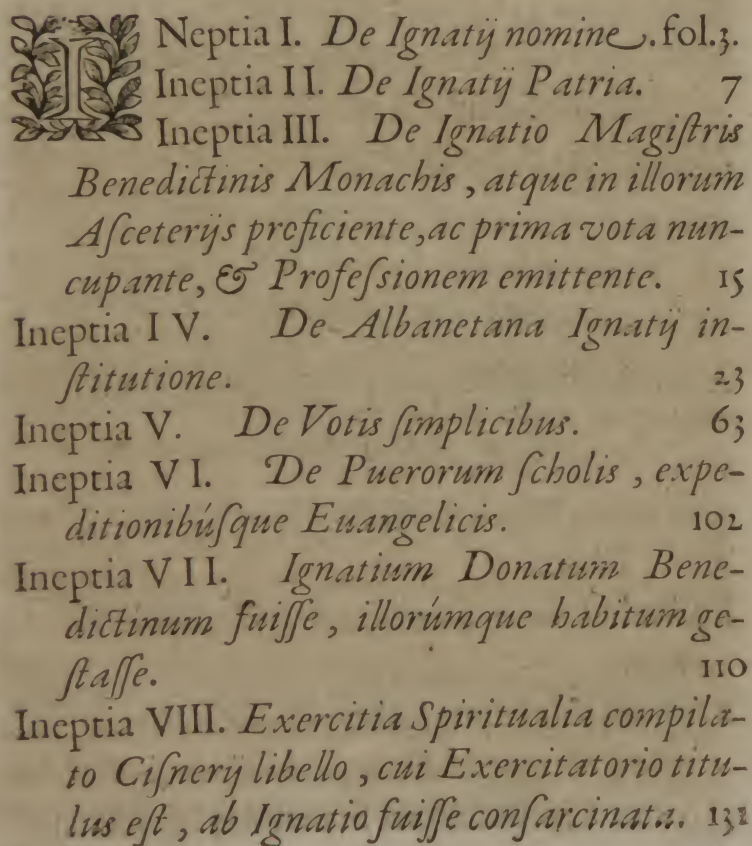 INeptia I. De Ignatij nomine. fol.3.
Ineptia II. De Ignatij Patria. 7
Ineptia III. De Ignatio Magiſtris
Benedictinis Monachis, atque in illorum
Aſceterijs proficiente, ac prima vota nun-
cupante, & Profeſsionem emittente. 15
Ineptia IV. De Albanetana Ignatij in-
ſtitutione. 23
Ineptia V. De Votis ſimplicibus. 63
Ineptia VI. De Puerorum ſcholis, expe-
ditionibúſque Euangelicis. 102
Ineptia VII. Ignatium Donatum Bene-
dictinum fuiſſe, illorúmque habitum ge-
ſtaſſe. 110
Ineptia VIII. Exercitia Spiritualia compila-
to Ciſnerij libello, cui Exercitatorio titu-
lus eſt, ab Ignatio fuiſſe conſarcinata. 132